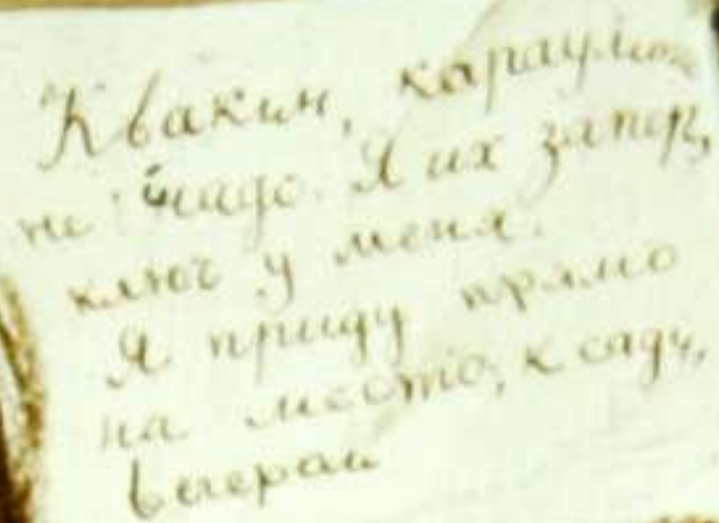 Квакин, караулить
не надо. Я их запер,
ключ у меня.
Я приду прямо
на место, к саду,